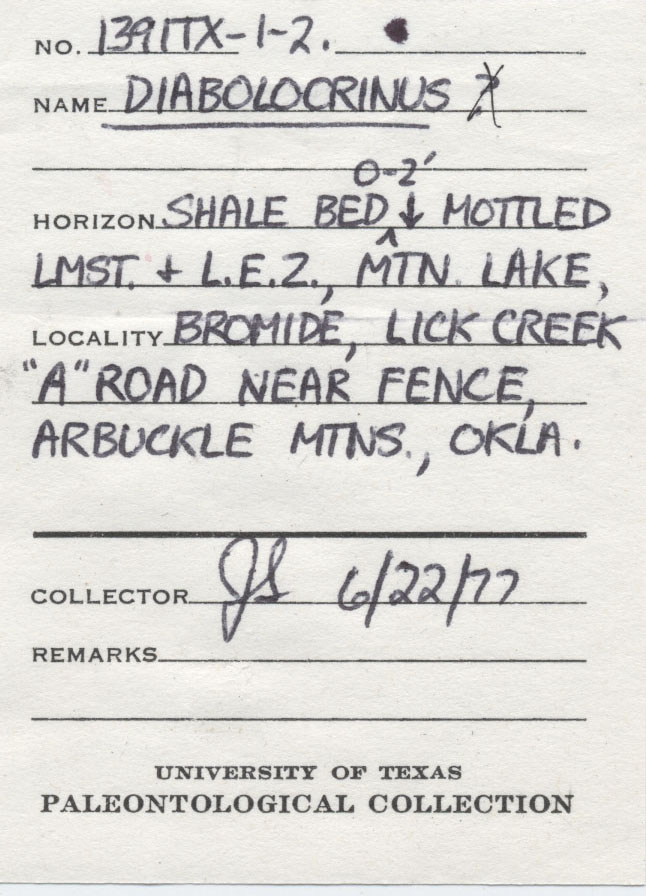 NO. 1391TX-1-2.
NAME DIABOLOCRINUS ?
0-2'
HORIZON SHALE BED ↓ MOTTLED
LMST. + L.E.Z., MTN. LAKE,
LOCALITY BROMIDE, LICK CREEK
"A" ROAD NEAR FENCE,
ARBUCKLE MTNS., OKLA.
COLLECTOR JS 6/22/77
REMARKS
UNIVERSITY OF TEXAS
PALEONTOLOGICAL COLLECTION